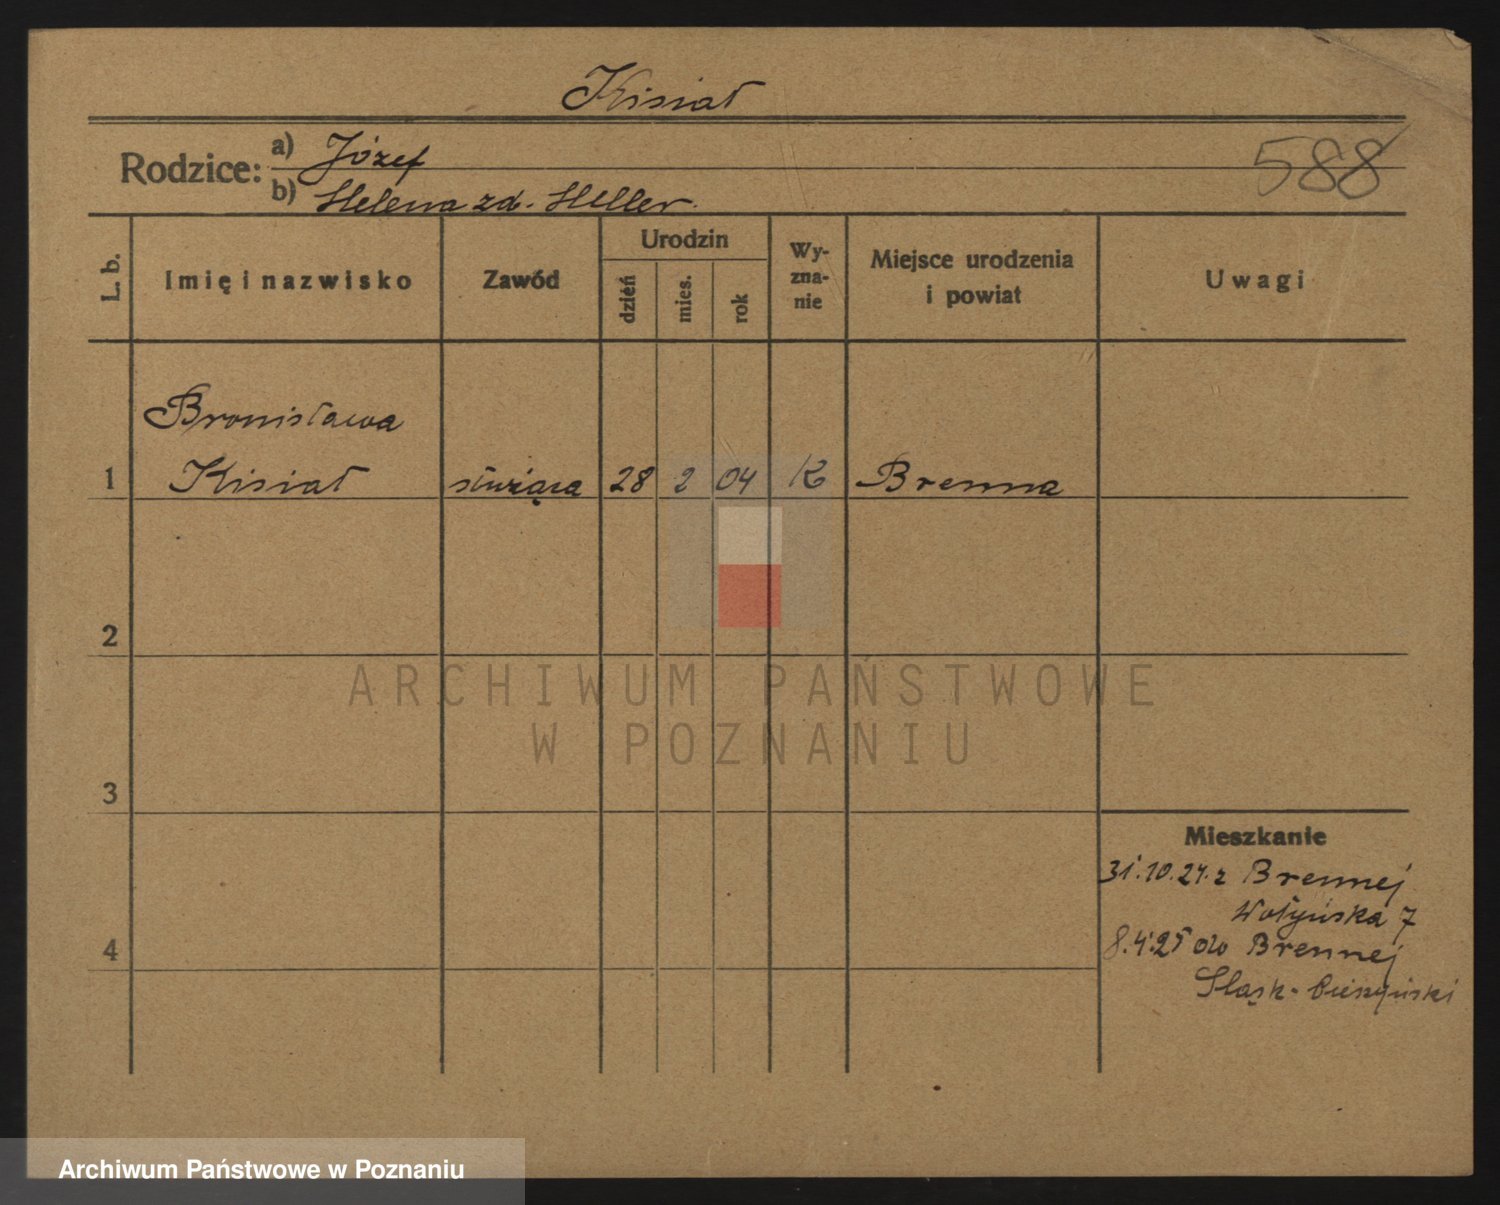 Kisiał
588
Rodzice: a) Józef
b) Helena zd. Heller.
L. b.
Imię i nazwisko
Zawód
Urodzin
dzień
mies.
rok
Wy-
zna-
nie
Miejsce urodzenia
i powiat
Uwagi
Bronisława
1 Kisiał służąca 28 2 04 K Brenna
2
ARCHIWUM PAŃSTWOWE
W POZNANIU
3
Mieszkanie
31.10.24. z Brennej
Wołyńska 7
4
8.4.25 do Brennej
Śląsk-Cieszyński
Archiwum Państwowe w Poznaniu